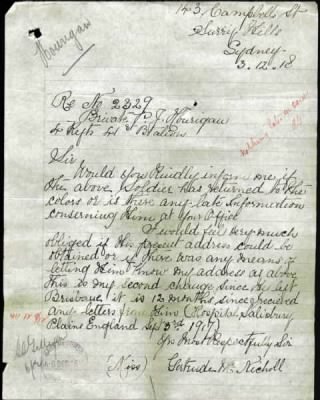 Hourigan
143 Campbell St
Surry Hills
Sydney
3.12.18
Re No 2329
Private P. J. Hourigan
4 Regts 41 Battion
Sir
Would you kindly inform me if
the above Soldier has returned to the
colors or is there any late information
conserning Him at your Office
I would feel very much
obliged if His present address could be
obtained or if there was any means of
letting Him know my address as above
this to my second change since He left
Brisbane it is 12 months since I received
any letters from Him (Hospital Salisbury
Plains England Sept 3rd 1917)
Yrs Most Respectfully Sir
(Miss) Gertrude M. Nicholl